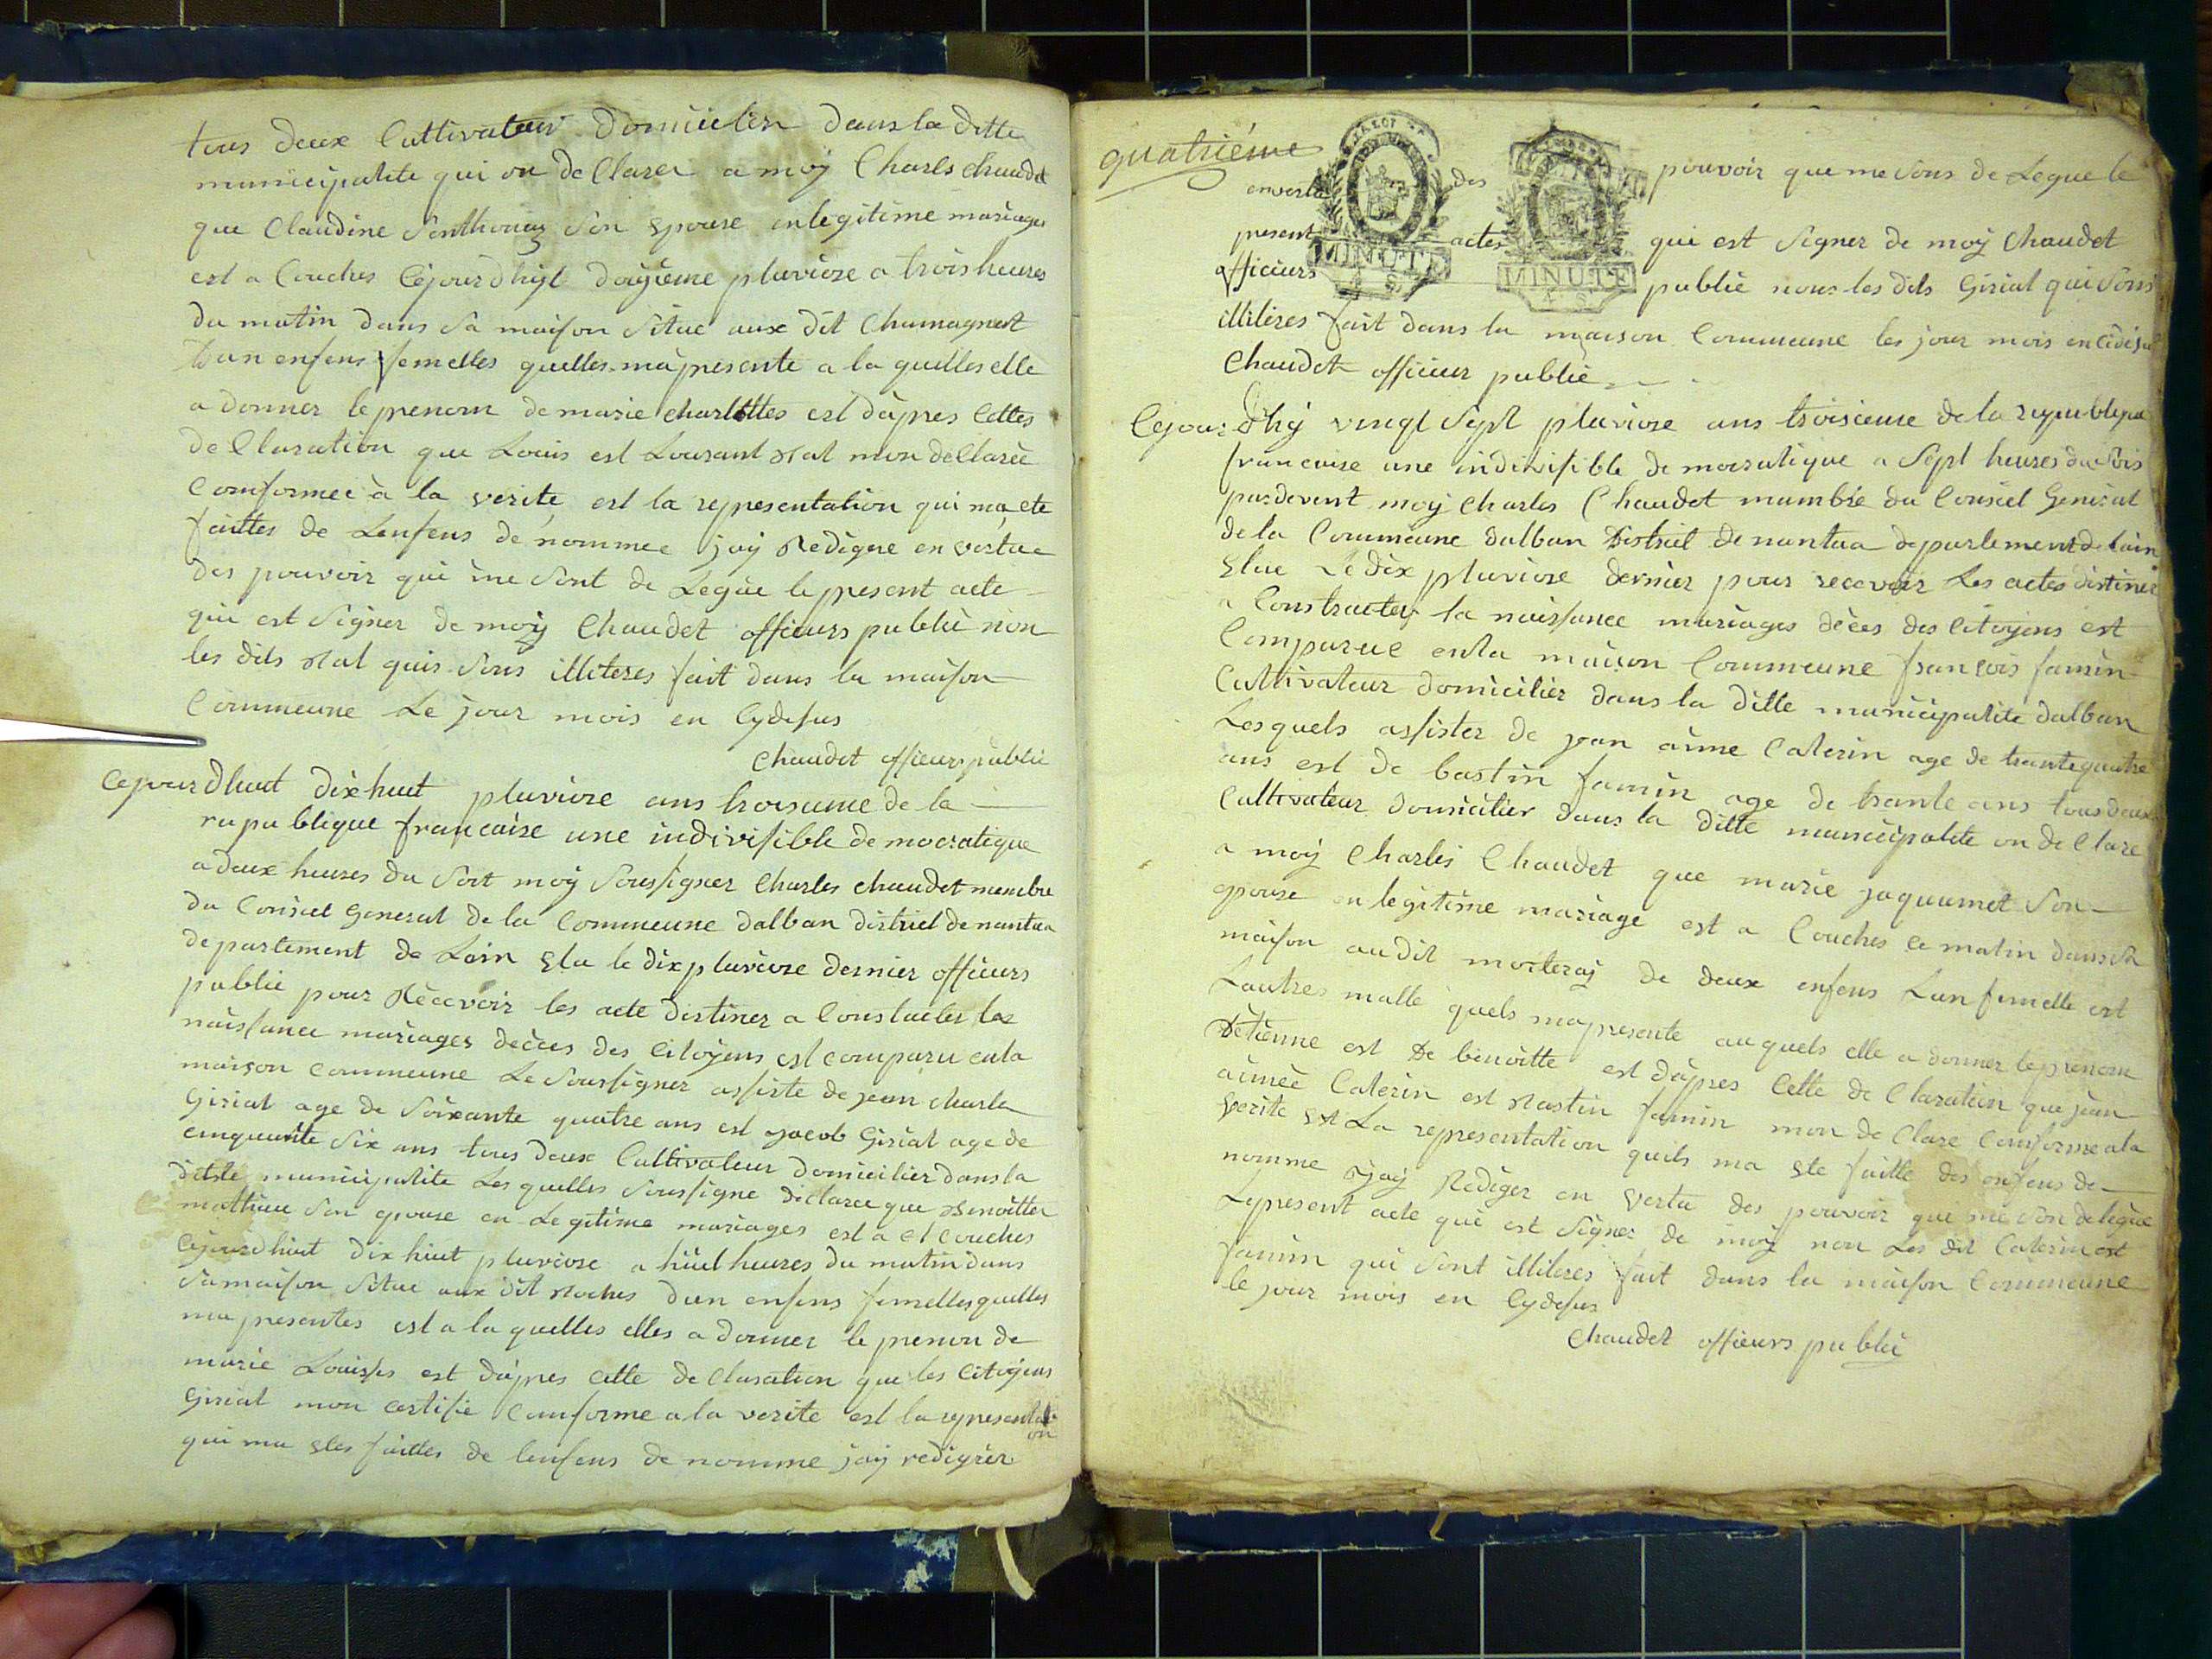 tous deux Cultivateur Domicilier dans la ditte
municipalite qui on declarer a moÿ Charls chaudet
que Claudine Sonthonaz son Epouse en legitime mariages
est a Couches Cejourdhÿt douzieme pluviose a trois heures
du matin dans sa maison situe aux dit Chamagneet
d'un enfens femelles quelles ma presente a la quelles elle
a donner le prenom de marie charlottes est dapres Cettes
declaration que Louis est Lourant Nat mon dellarée
Comformee à la verite est la representation qui ma ete
faittes de Lenfens dénommee jaÿ Redigee en vertue
des pouvoir qui me sont de Legue le present acte
qui est Signer de moÿ Chaudet officiers publié non
les dits Nat quis sons illiteres fait dans la maison
Commeune Le jour mois en Cydesus
Chaudet officiers publié
Cejourdhuit dixhuit pluviose ans troisieme de la
rapublique francaise une indivisible democratique
a deux heures du soit moÿ soussigner Charles chaudet membre
du Consiel General de la Commeune dalban district de nantua
departement de Lain Elu le dix pluviose dernier officiers
publié pour Recevoir les acte distiner a Constacter la
naissance mariages décés des Citoÿens est comparu en la
maison commeune Le Soussigner assiste de jean charle
Girial age de soixante quatre ans est jacob Girial age de
cinquante six ans tous deux Cultivateur domicilier dans la
ditte municipalite Les quelles soussigne declaree que Benoitte
mathieu son epouse en Legitime mariages est a et couches
Cejourdhuit dix huit pluviose a huit heures du matin dans
sa maison situe aux dit Roches dun enfens femelles quelles
ma presentes est a la quelles elles a donner le prenon de
marie Louisses est dapres cette declaration que les Citoÿens
Girial mon certifie Comforme a la verite est la representati
on
qui ma etes faittes de lenfens denomme jaÿ redigrer
quatriéme
en vertu des pouvoir que me sons de Legue le
present actes qui est Signer de moÿ Chaudet
officiers publié nous les dits Girial qui sons
illiteres fait dans la maison Commeune les jour mois en Cidesu
Chaudet officier publié
MINUTE
MINUTE
Cejourdhÿ vingt sept pluviose ans troisieme de la republique
francaise une indivisible democratique a Sept heures du sois
pardevent moÿ Charles Chaudet mambre du Consiel General
de la Commeune dalban District de nantua departement de Lain
Elue Le dix pluviose dernier pour recevoir Les actes distiner
a Constracter la naissance mariages décés des Citoyens est
Comparue en la maison Commeune francois famin
Cultivateur domicilier dans la ditte municipalite dalban
Lesquels assister de jean aime Caterin age de trantequatre
ans est de bastin famin age de trante ans tous deux
Cultivateur Domicilier dans la ditte municipalite on declare
a moÿ Charles Chaudet que marie jaquemet son
epouse en legitime mariage est a Couches ce matin dans sa
maison au dit morteraÿ de deux enfens Lun femelle est
Lautres malle quels ma presente au quels elle a donner le prenom
Detienne est De benoitte est dapres Cette declaration que jean
aimée Caterin est Nastin famin mon declare Comforme a la
verite est La representation quils ma ete faitte des enfens de
nomme jaÿ Rediger en vertu des pouvoir que me son delegue
Lepresent acte qui est Signer de moÿ non Les dit Caterin est
famin qui sont illiteres fait dans la maison Commeune
le jour mois en Cydesus
Chaudet officiers publié